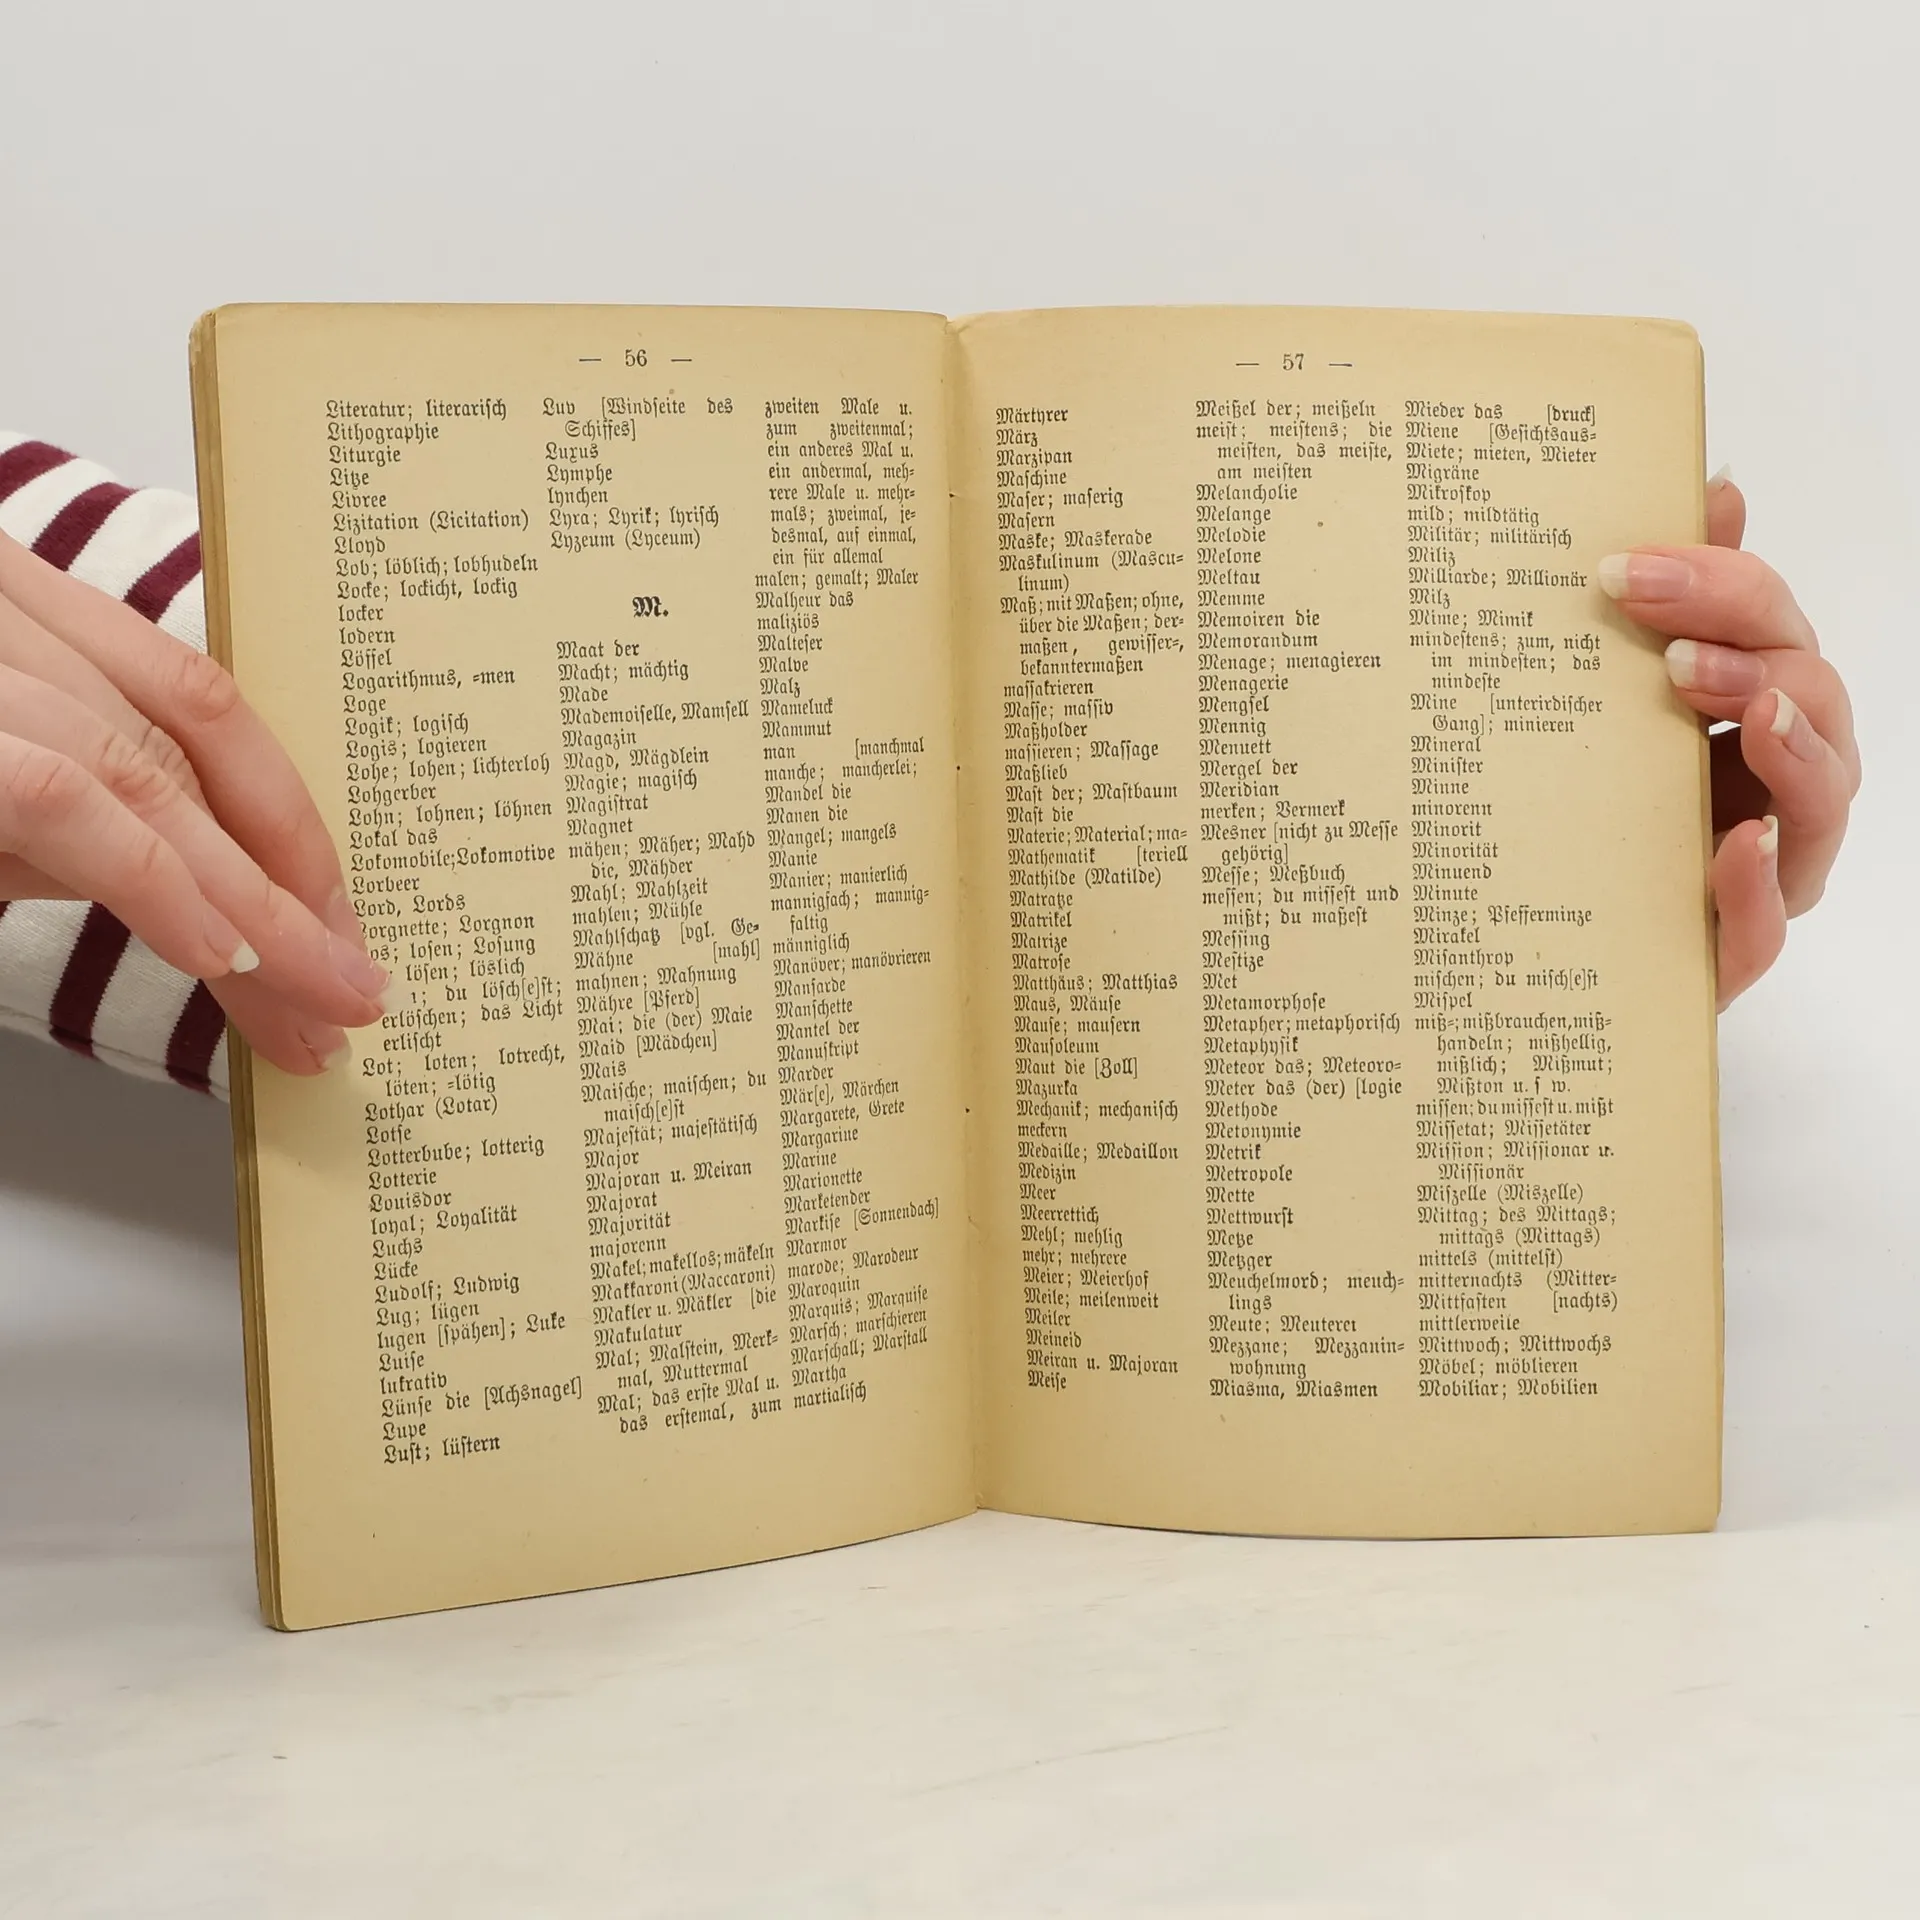 — 56 —
Literatur; literarisch
Lithographie
Liturgie
Litze
Livree
Lizitation (Licitation)
Lloyd
Lob; löblich; lobhudeln
Locke; lockicht, lockig
locker
lodern
Löffel
Logarithmus, =men
Loge
Logik; logisch
Logis; logieren
Lohe; lohen; lichterloh
Lohgerber
Lohn; lohnen; löhnen
Lokal das
Lokomobile; Lokomotive
Lorbeer
Lord, Lords
Lorgnette; Lorgnon
losen; Losung
lösen; löslich
du lösch[e]st;
erlöschen; das Licht
erlischt
Lot; loten; lotrecht,
löten; =lötig
Lothar (Lotar)
Lotse
Lotterbube; lotterig
Lotterie
Louisdor
loyal; Loyalität
Luchs
Lücke
Ludolf; Ludwig
Lug; lügen
lugen [spähen]; Luke
Luise
lukrativ
Lünse die [Achsnagel]
Lupe
Lust; lüstern
Luv [Windseite des
Schiffes]
Luxus
Lymphe
lynchen
Lyra; Lyrik; lyrisch
Lyzeum (Lyceum)
M.
Maat der
Macht; mächtig
Made
Mademoiselle, Mamsell
Magazin
Magd, Mägdlein
Magie; magisch
Magistrat
Magnet
mähen; Mäher; Mahd
die, Mähder
Mahl; Mahlzeit
mahlen; Mühle
Mahlschatz [vgl. Ge-
Mähne [mahl]
mahnen; Mahnung
Mähre [Pferd]
Mai; die (der) Maie
Maid [Mädchen]
Mais
Maische; maischen; du
maisch[e]st
Majestät; majestätisch
Major
Majoran u. Meiran
Majorat
Majorität
majorenn
Makel; makellos; mäkeln
Makkaroni (Maccaroni)
Makler u. Mäkler [die
Makulatur
Mal; Malstein, Merk=
mal, Muttermal
Mal; das erste Mal u.
das erstemal, zum
zweiten Male u.
zum zweitenmal;
ein anderes Mal u.
ein andermal, meh=
rere Male u. mehr=
mals; zweimal, je=
desmal, auf einmal,
ein für allemal
malen; gemalt; Maler
Malheur das
maliziös
Malteser
Malve
Malz
Mameluck
Mammut
man [manchmal
manche; mancherlei;
Mandel die
Manen die
Mangel; mangels
Manie
Manier; manierlich
mannigfach; mannig=
faltig
männiglich
Manöver; manövrieren
Mansarde
Manschette
Mantel der
Manuskript
Marder
Mär[e], Märchen
Margarete, Grete
Margarine
Marine
Marionette
Marketender
Markise [Sonnendach]
Marmor
marode; Marodeur
Maroquin
Marquis; Marquise
Marsch; marschieren
Marschall; Marstall
Martha
martialisch
— 57 —
Märtyrer
März
Marzipan
Maschine
Maser; maserig
Masern
Maske; Maskerade
Maskulinum (Mascu=
linum)
Maß; mit Maßen; ohne,
über die Maßen; der=
maßen, gewisser=,
bekanntermaßen
massakrieren
Masse; massiv
Maßholder
massieren; Massage
Maßlieb
Mast der; Mastbaum
Mast die
Materie; Material; ma=
Mathematik [teriell
Mathilde (Matilde)
Matratze
Matrikel
Matrize
Matrose
Matthäus; Matthias
Maus, Mäuse
Mause; mausern
Mausoleum
Maut die [Zoll]
Mazurka
Mechanik; mechanisch
meckern
Medaille; Medaillon
Medizin
Meer
Meerrettich
Mehl; mehlig
mehr; mehrere
Meier; Meierhof
Meile; meilenweit
Meiler
Meineid
Meiran u. Majoran
Meise
Meißel der; meißeln
meist; meistens; die
meisten, das meiste,
am meisten
Melancholie
Melange
Melodie
Melone
Meltau
Memme
Memoiren die
Memorandum
Menage; menagieren
Menagerie
Mengsel
Mennig
Menuett
Mergel der
Meridian
merken; Vermerk
Mesner [nicht zu Messe
gehörig]
Messe; Meßbuch
messen; du missest und
mißt; du maßest
Messing
Mestize
Met
Metamorphose
Metapher; metaphorisch
Metaphysik
Meteor das; Meteoro=
Meter das (der) [logie
Methode
Metonymie
Metrik
Metropole
Mette
Mettwurst
Metze
Metzger
Meuchelmord; meuch=
lings
Meute; Meuterei
Mezzane; Mezzanin=
wohnung
Miasma, Miasmen
Mieder das [druck]
Miene [Gesichtsaus=
Miete; mieten, Mieter
Migräne
Mikroskop
mild; mildtätig
Militär; militärisch
Miliz
Milliarde; Millionär
Milz
Mime; Mimik
mindestens; zum, nicht
im mindesten; das
mindeste
Mine [unterirdischer
Gang]; minieren
Mineral
Minister
Minne
minorenn
Minorit
Minorität
Minuend
Minute
Minze; Pfefferminze
Mirakel
Misanthrop
mischen; du misch[e]st
Mispel
miß=; mißbrauchen, miß=
handeln; mißhellig,
mißlich; Mißmut;
Mißton u. s w.
missen; du missest u. mißt
Missetat; Missetäter
Mission; Missionar u.
Missionär
Miszelle (Miszelle)
Mittag; des Mittags;
mittags (Mittags)
mittels (mittelst)
mitternachts (Mitter=
Mittfasten [nachts)
mittlerweile
Mittwoch; Mittwochs
Möbel; möblieren
Mobiliar; Mobilien